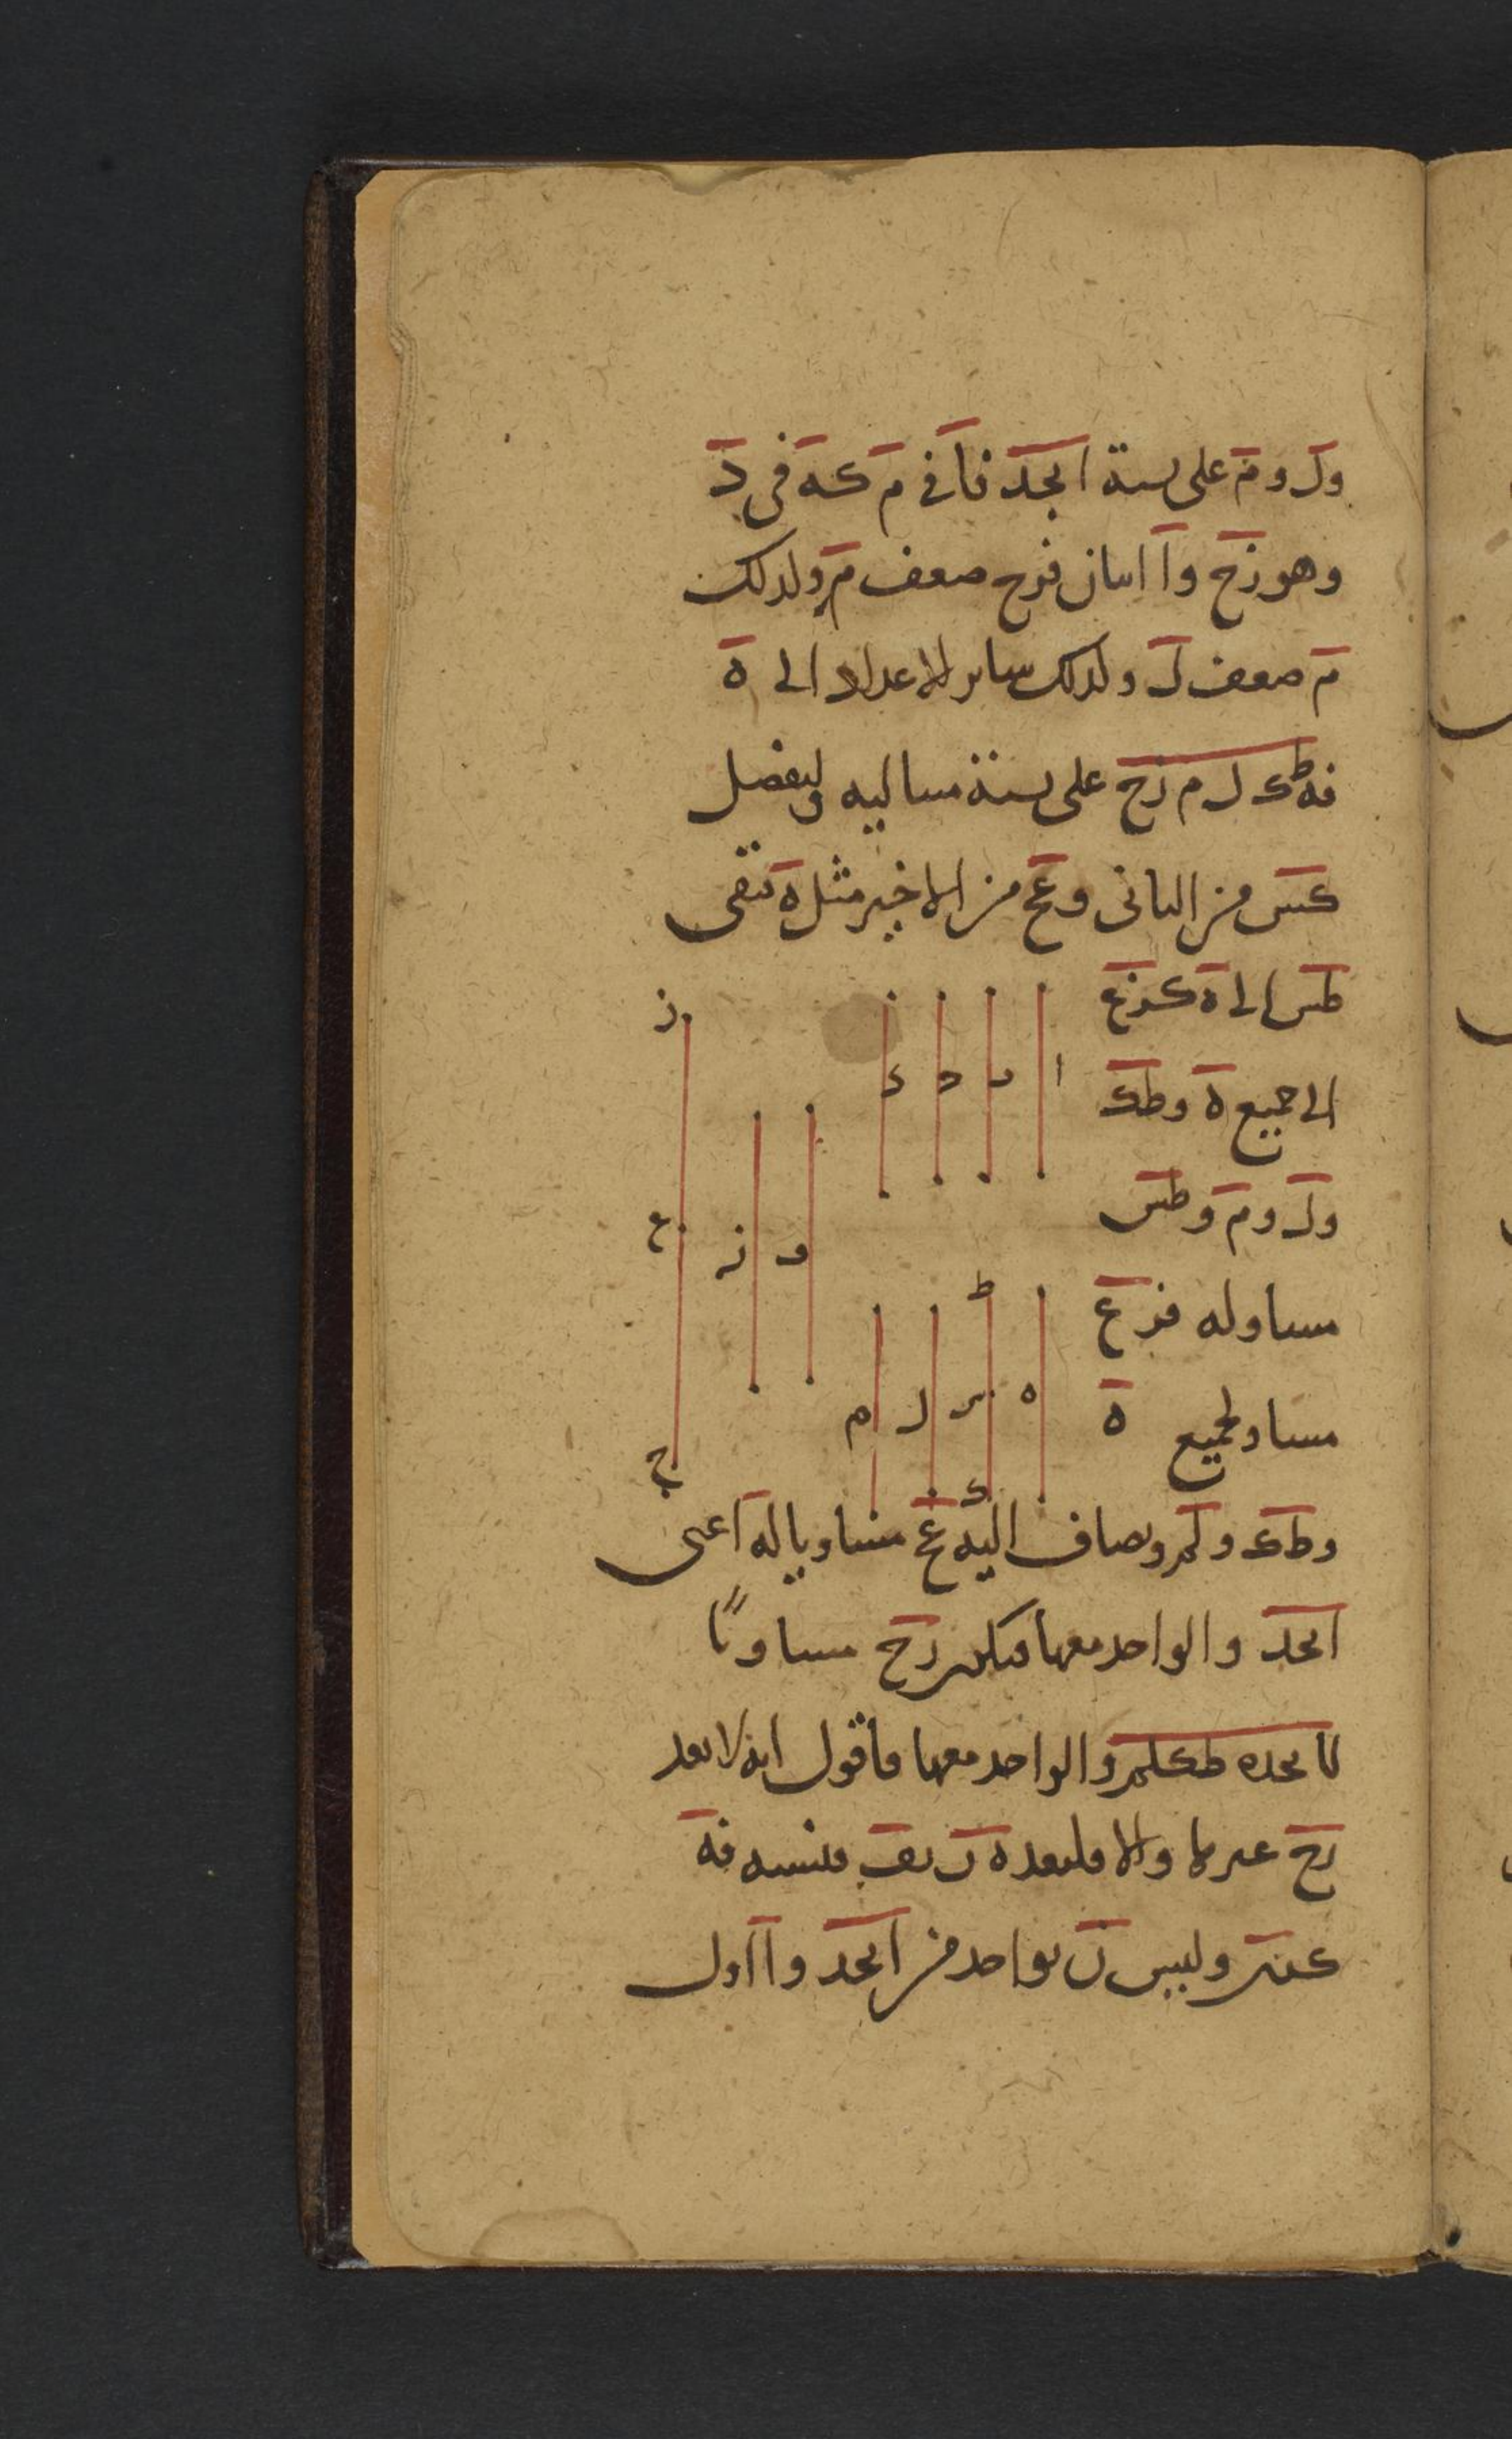 ول وم على نسبة ابجد فا في م كه في د
وهو زح وا اثنان فزح ضعف م ولذلك
م ضعف ل وكذلك سائر الاعداد الى ه
فه طك ل م زح على نسبة متتالية وليفصل
كس من الثانى وعح من الاخير مثل ه تبقى
طس الى ه كزع
الى جميع ه وطك
ول وم وطس
مساو له فزع
مساو لجميع ه
وطك ولم ويضاف اليه عح مساويا له اعنى
ابجد والواحد معها فيكون زح مساويًا
لابجده طكلم والواحد معها فاقول انه لا يعد
زح غيرها والا فليعده ن بقف فنسبة فه
كنس وليس ن بواحد من ابجد وا اول
ا ب ج د
و ز
ز ع ح
ه ط س ك ل م